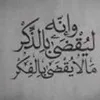 وإنه
ليقضى بالذكر
ما لا يقضى بالفكر